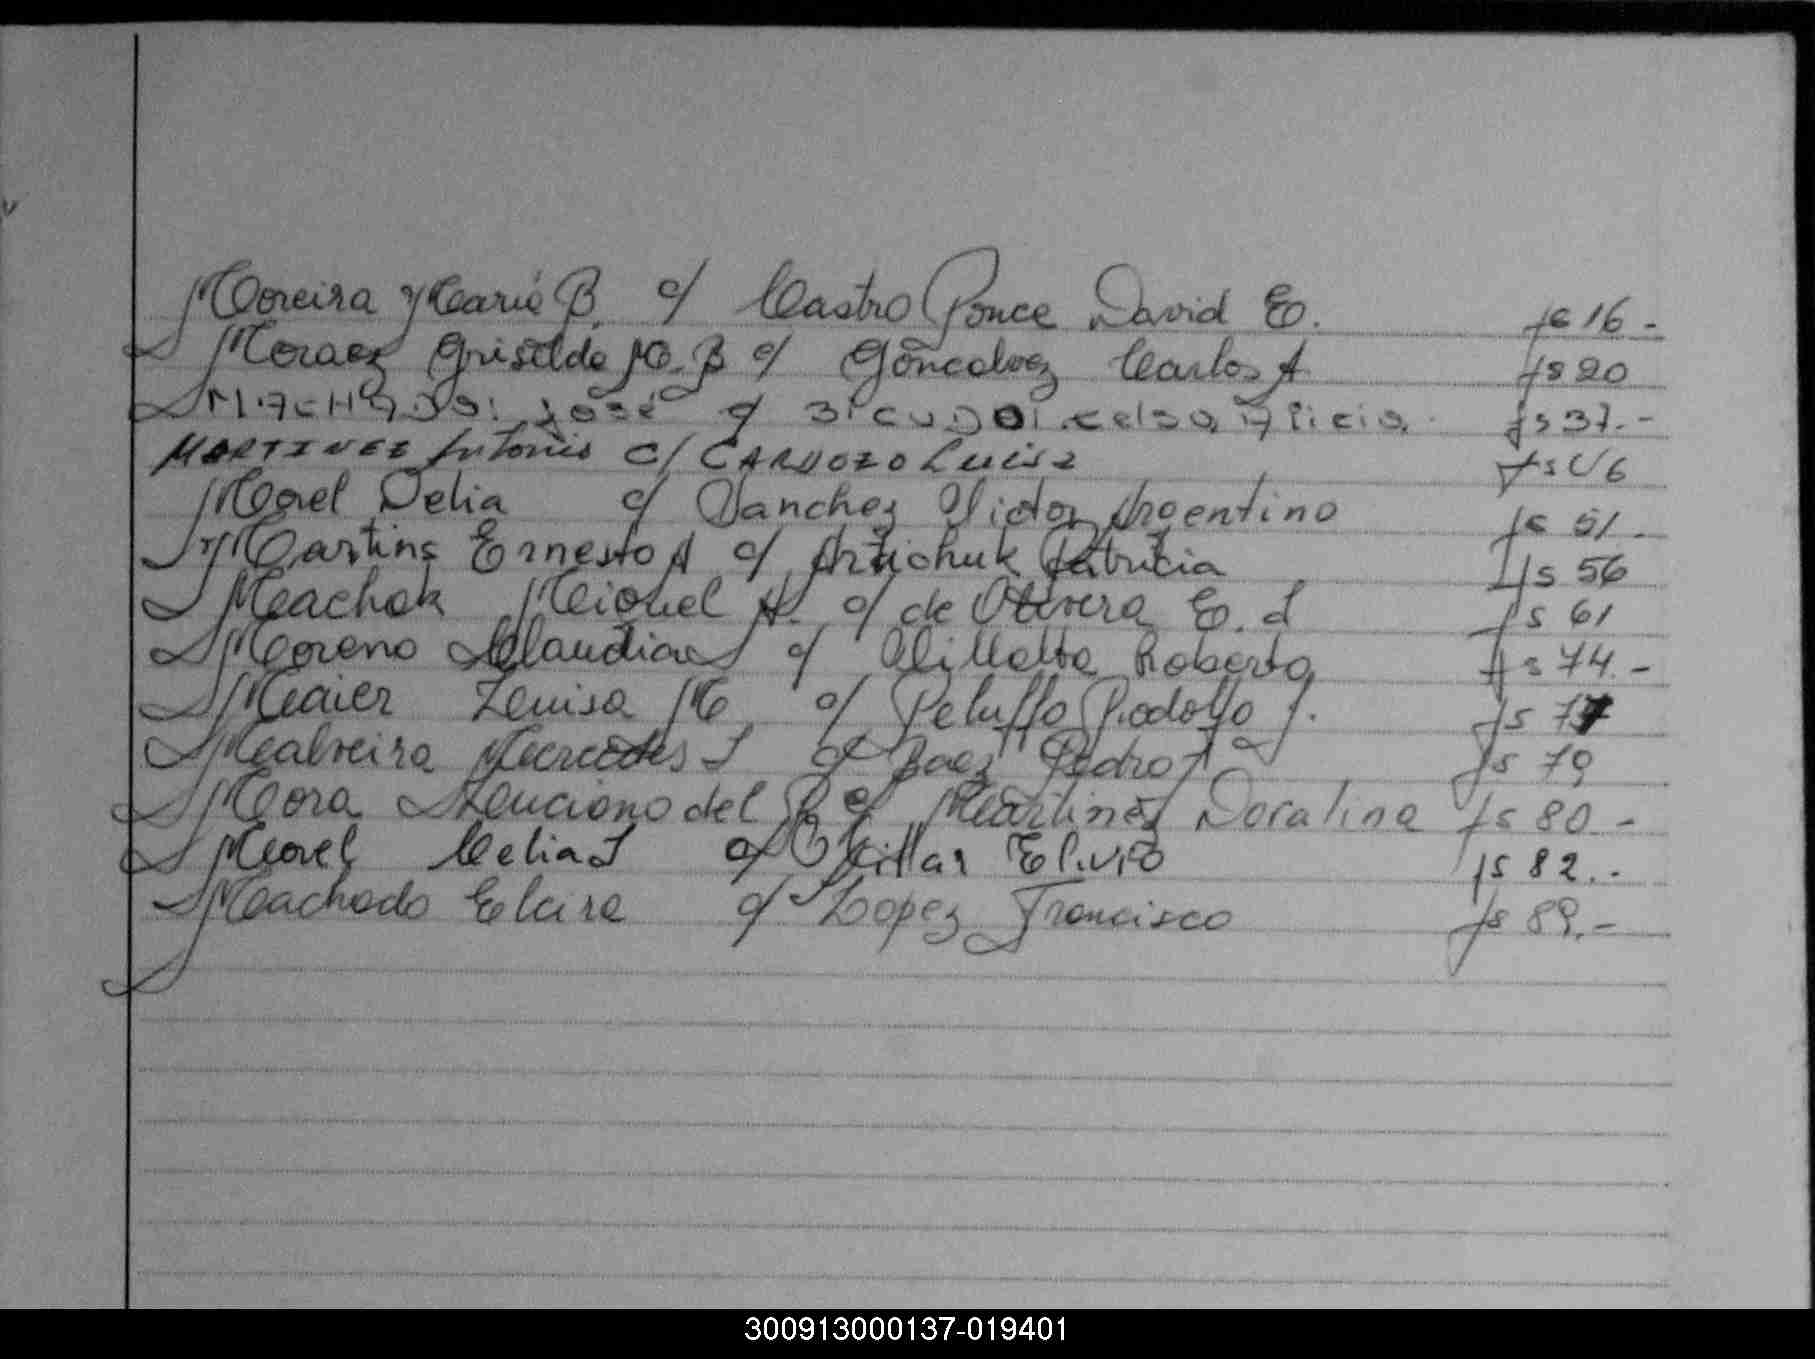 Moreira Maria B. c/ Castro Ponce David E. fs 16.-
Moraez Griselda M. B c/ Goncalvez Carlos A fs 20
MACHADO: José c/ celsa Alicia. fs 37.-
MARTINEZ Antonio c/ CARDOZO Luisa fs 46
Morel Delia c/ Sanchez Victor Argentino fs 51.-
Martins Ernesto A c/ Patricia fs 56
Machak Miguel A. c/ de Olivera E. I fs 61
Moreno Claudia c/ Villalba Roberto fs 74.-
Maier Zenisa M. c/ Peluffo Rodolfo J. fs 77
Malveira Mercedes I c/ Baez Pedro A fs 79
Mora Luciano del R c/ Martinez Doralina fs 80.-
Morel Celia I c/ Villar Elvio fs 82.-
Machado Elcira c/ Lopez Francisco fs 89.-
300913000137-019401